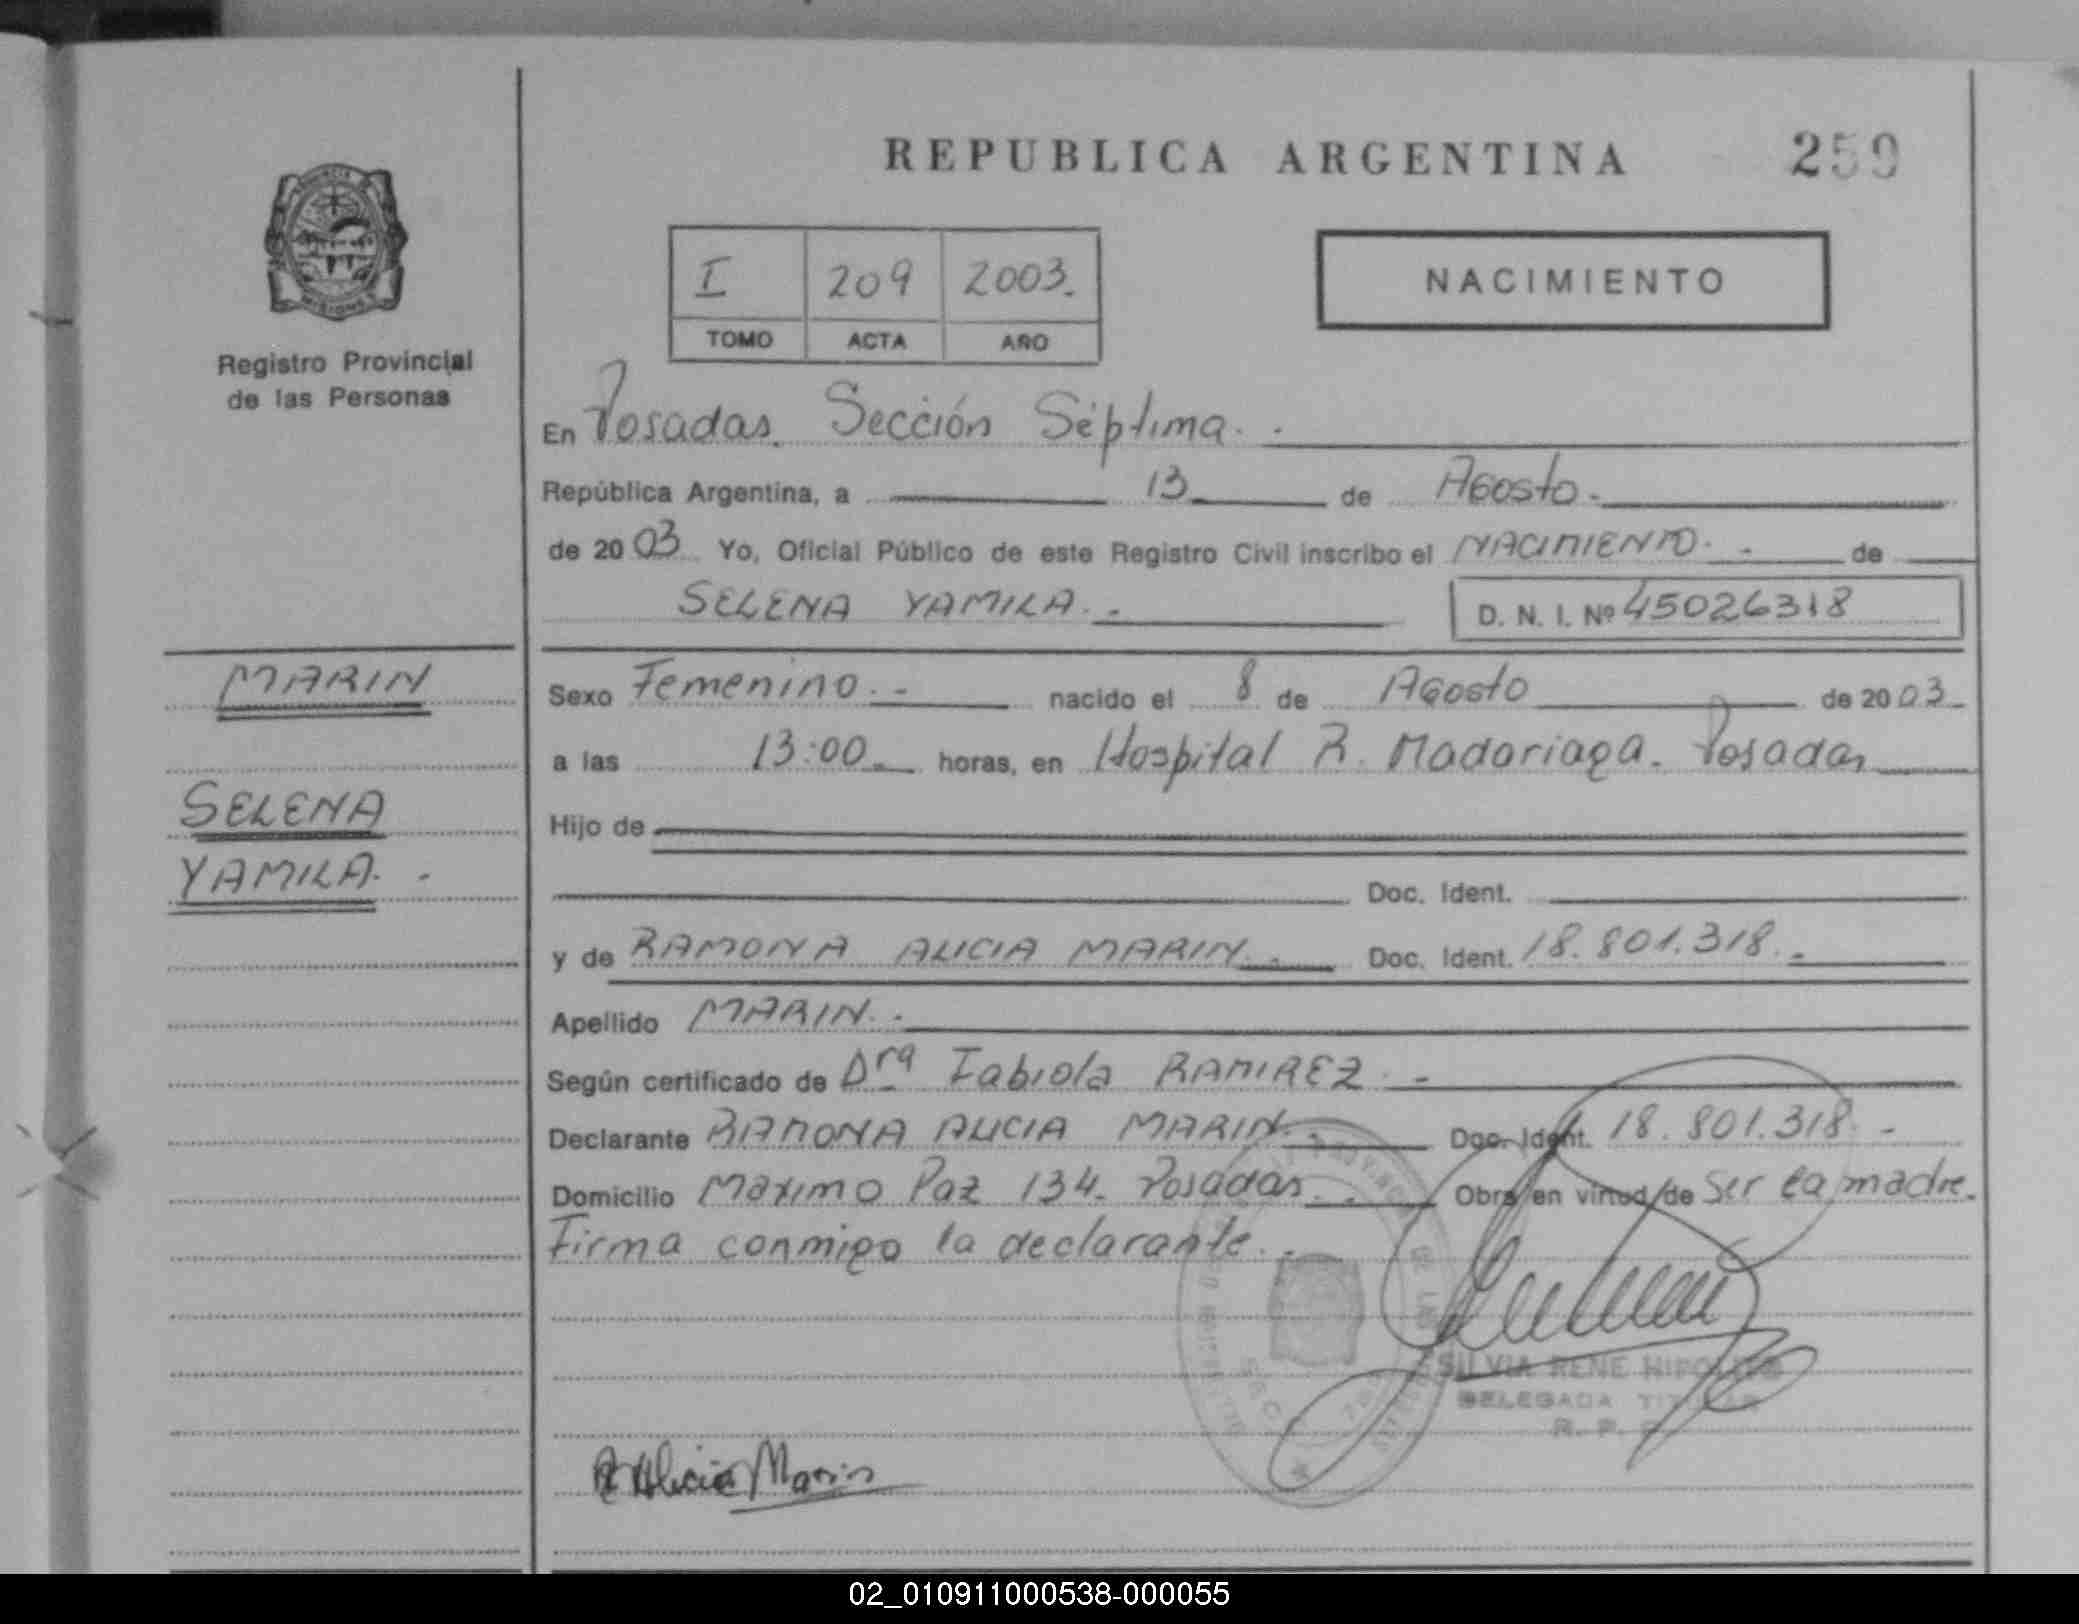 REPUBLICA ARGENTINA 259
PROVINCIA DE
MISIONES
Registro Provincial
de las Personas
I 209 2003.
TOMO ACTA AÑO
NACIMIENTO
En Posadas. Sección Séptima.
República Argentina, a 13 de Agosto.
de 2003 Yo, Oficial Público de este Registro Civil inscribo el NACIMIENTO. de
SELENA YAMILA. D. N. I. Nº 45026318
MARIN
SELENA
YAMILA.
Sexo Femenino. nacido el 8 de Agosto de 2003
a las 13:00 horas, en Hospital R. Madariaga. Posadas
Hijo de
Doc. Ident.
y de RAMONA ALICIA MARIN. Doc. Ident. 18.801.318.
Apellido MARIN.
Según certificado de Dra Fabiola RAMIREZ.
Declarante RAMONA ALICIA MARIN. Doc. Ident. 18.801.318.
Domicilio Maximo Paz 134. Posadas. Obra en virtud de Ser la madre.
Firma conmigo la declarante.
SILVIA RENE HIPOLITO
DELEGADA TITULAR
R. P.
R Alicia Marin
02_010911000538-000055